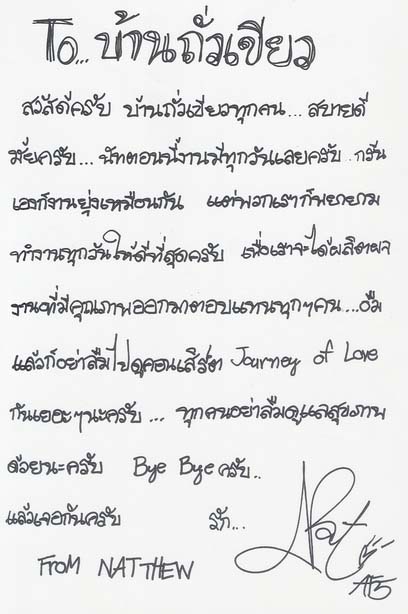 To... บ้านถั่วเขียว
สวัสดีครับ บ้านถั่วเขียวทุกคน... สบายดี
มั้ยครับ... นัทตอนนี้งานมีทุกวันเลยครับ กรีน
เองก็งานยุ่งเหมือนกัน แต่พวกเราก็พยายาม
ทำงานทุกวันให้ดีที่สุดครับ เพื่อเราจะได้ผลิตผล
งานที่มีคุณภาพออกมาตอบแทนทุกๆคน... อืม
แล้วก็อย่าลืมไปดูคอนเสิร์ต Journey of Love
กันเยอะๆนะครับ... ทุกคนอย่าลืมดูแลสุขภาพ
ด้วยนะครับ Bye Bye ครับ..
แล้วเจอกันครับ รัก...
Nat
FROM NATTHEW
AF5